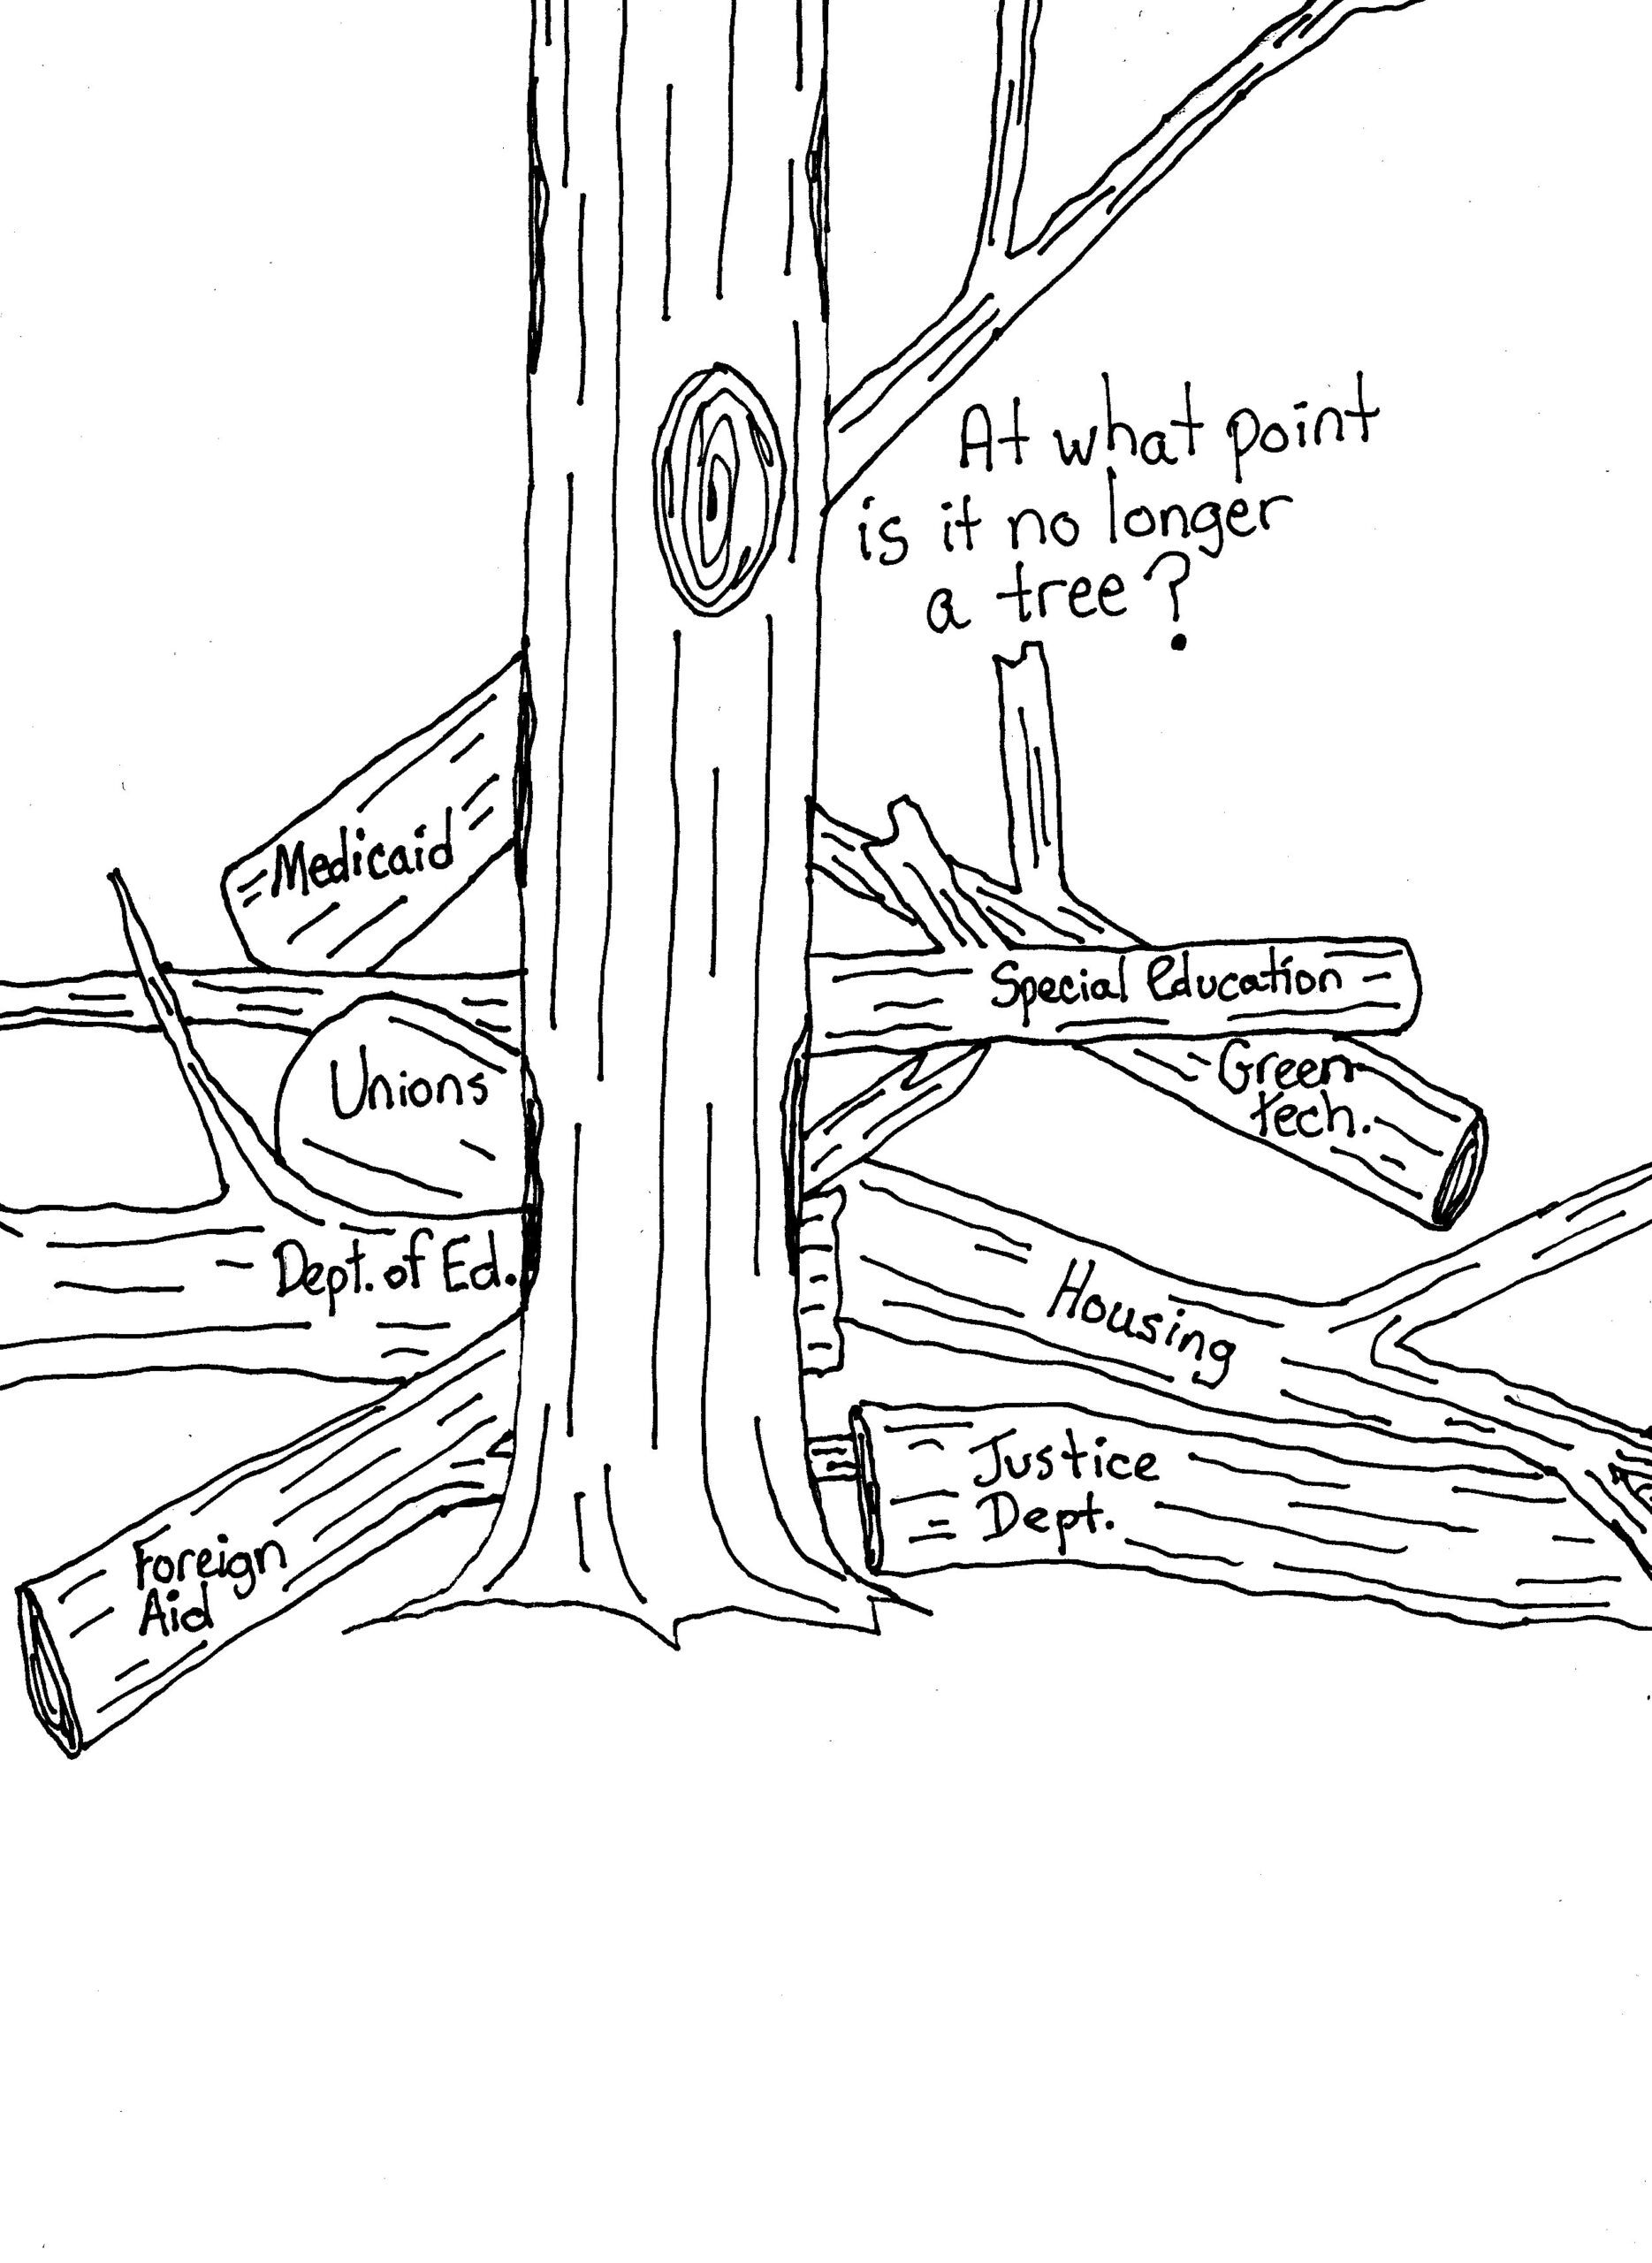 At what point
is it no longer
a tree?
Medicaid
Special Education
Unions
Green
tech.
Dept. of Ed.
Housing
Justice
Dept.
Foreign
Aid